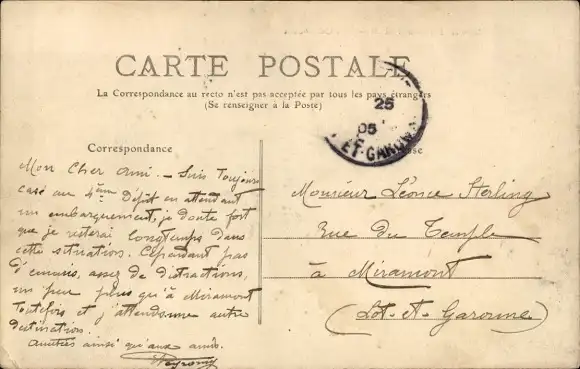 CARTE POSTALE
La Correspondance au recto n'est pas acceptée par tous les pays étrangers
(Se renseigner à la Poste)
25
05
ET-GARON
Correspondance
Mon Cher Ami. - Suis toujours
casé au 4ème Dépôt en attendant
un embarquement, je doute fort
que je resterai longtemps dans
cette situation. Cependant pas
d'ennuis, assez de distractions,
un peu plus qu'à Miramont
Toutefois et j'attends une autre
destination.
Amitiés ainsi qu'aux amis.
Monsieur Léonce Sterling
Rue du Temple
à Miramont
(Lot-et-Garonne)